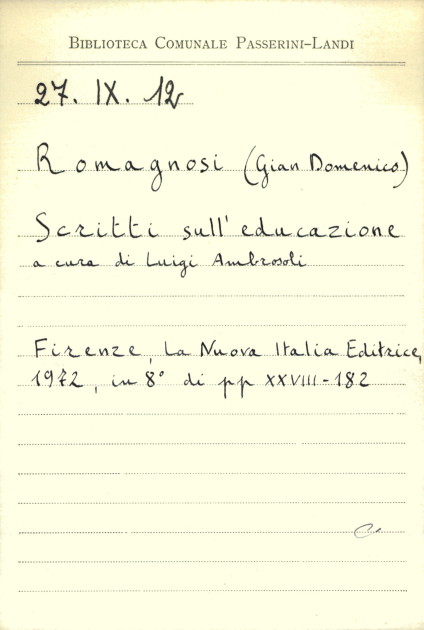 BIBLIOTECA COMUNALE PASSERINI-LANDI
27. IX. 12
Romagnosi (Gian Domenico)
Scritti sull'educazione
a cura di Luigi Ambrosoli
Firenze, La Nuova Italia Editrice,
1972, in 8° di pp XXVIII-182